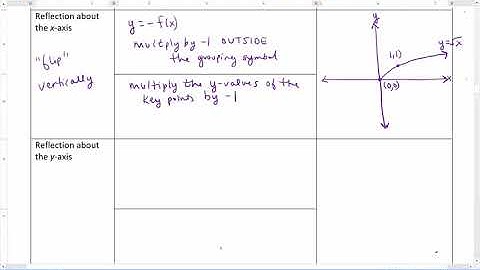 Reflection about
the x-axis
"flip"
vertically
y = -f(x)
multply by -1 OUTSIDE
the grouping symbol
multiply the y-values of the
key points by -1
y
y=√x
1,1)
x
(0,0)
Reflection about
the y-axis